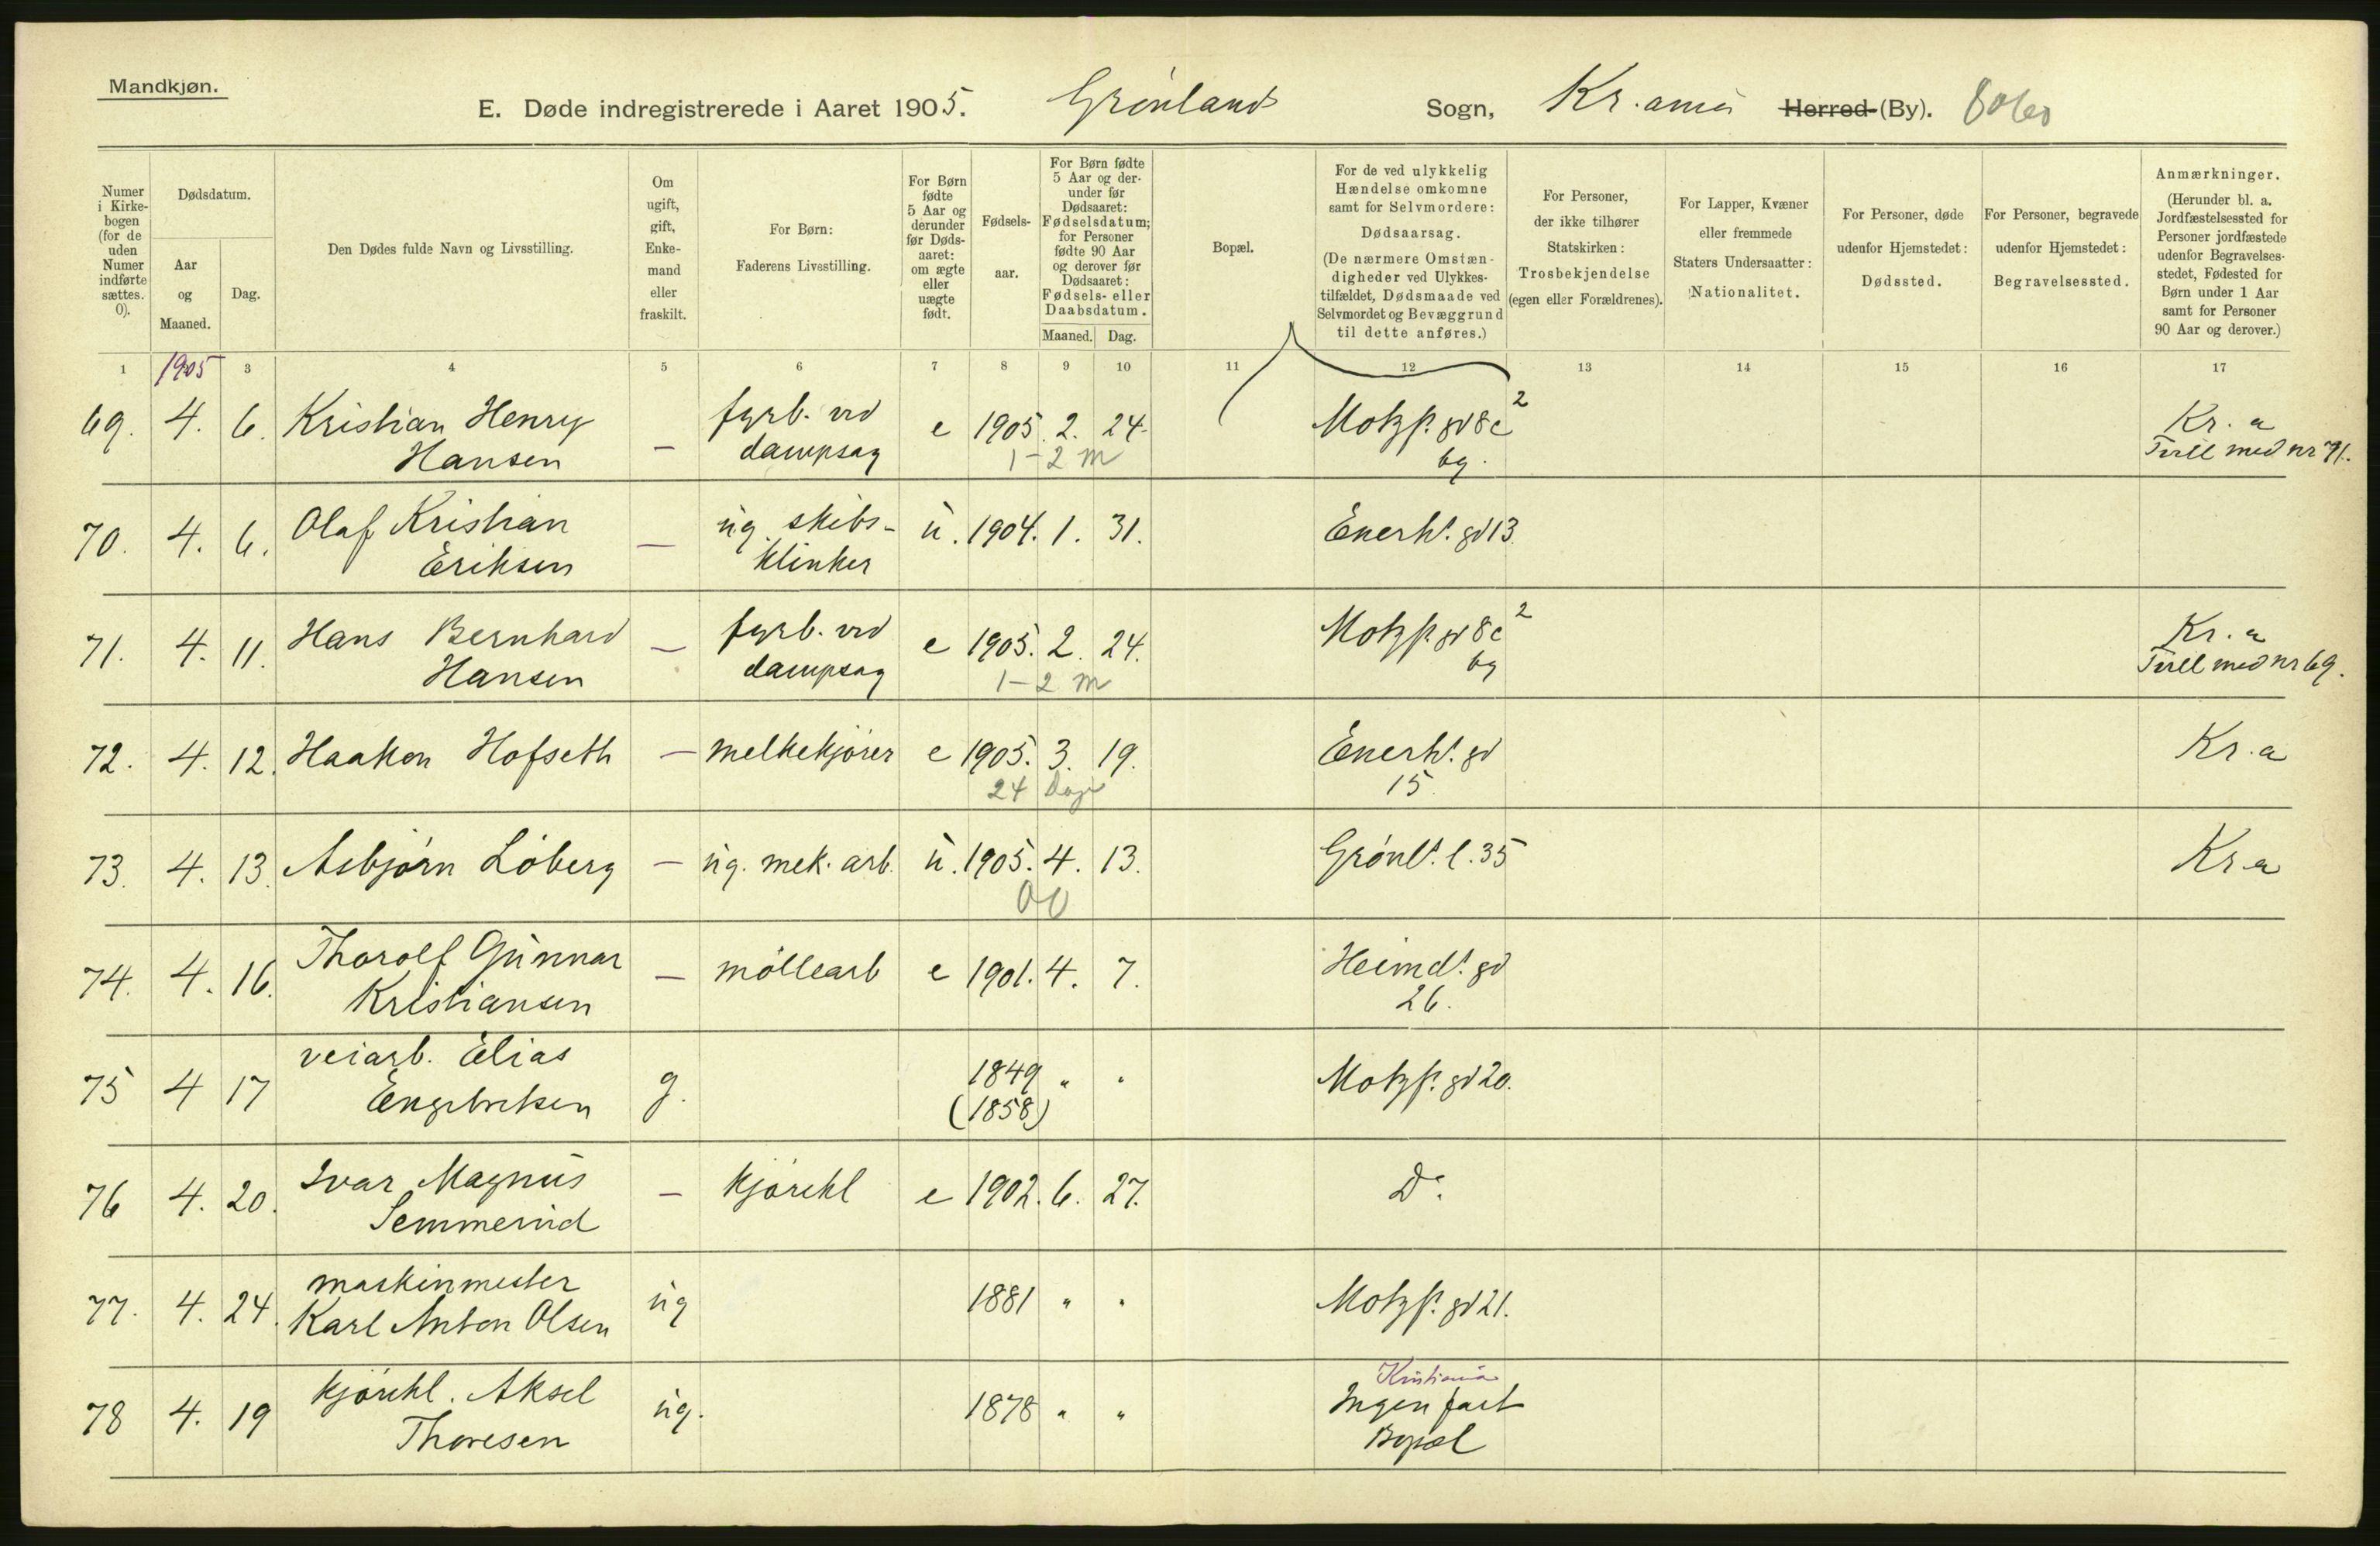 Mandkjøn.
E. Døde indregistrerede i Aaret 1905. Grønland Sogn, Kr.ania Herred (By).
Numer i Kirkebogen (for de uden Numer indførte sættes. 0).
Dødsdatum.
Aar og Maaned.
Dag.
Den Dødes fulde Navn og Livsstilling.
Om ugift, gift, Enkemand eller fraskilt.
For Børn: Faderens Livsstilling.
For Børn fødte 5 Aar og derunder før Dødsaaret: om ægte eller uægte født.
Fødselsaar.
For Børn fødte 5 Aar og derunder før Dødsaaret: Fødselsdatum; for Personer fødte 90 Aar og derover før Dødsaaret: Fødsels- eller Daabsdatum.
Maaned. Dag.
Bopæl.
For de ved ulykkelig Hændelse omkomne samt for Selvmordere: Dødsaarsag. (De nærmere Omstændigheder ved Ulykkestilfældet, Dødsmaade ved Selvmordet og Bevæggrund til dette anføres.)
For Personer, der ikke tilhører Statskirken: Trosbekjendelse (egen eller Forældrenes).
For Lapper, Kvæner eller fremmede Staters Undersaatter: Nationalitet.
For Personer, døde udenfor Hjemstedet: Dødssted.
For Personer, begravede udenfor Hjemstedet: Begravelsessted.
Anmærkninger. (Herunder bl. a. Jordfæstelsessted for Personer jordfæstede udenfor Begravelsesstedet, Fødested for Børn under 1 Aar samt for Personer 90 Aar og derover.)
1 1905 3 4 5 6 7 8 9 10 11 12 13 14 15 16 17
69. 4. 6. Kristian Henry Hansen — fyrb. ved dampsag e 1905. 2. 24. Motzf. gd 8c² bg. Kr.a Tvill med nr 71.
1-2 m
70. 4. 6. Olaf Kristian Eriksen — ug. skibsklinker u. 1904. 1. 31. Enerh. gd 13.
71. 4. 11. Hans Bernhard Hansen — fyrb. ved dampsag e 1905. 2. 24. Motzf. gd 8c² bg Kr.a Tvill med nr 69.
1-2 m
72. 4. 12. Haakon Hofseth — melkekjører e 1905. 3. 19. Enerh. gd 15. Kr.a
24 Dage
73. 4. 13. Asbjørn Løberg — ug. mek. arb. u. 1905. 4. 13. Grønl. l. 35 Kr.a
00
74. 4. 16. Thorolf Gunnar Kristiansen — møllearb e 1901. 4. 7. Heimd. gd 26.
75 4 17 veiarb. Elias Engebretsen g. 1849 " " Motzf. gd 20.
(1858)
76 4. 20. Ivar Magnus Semmerud — kjørekl e 1902. 6. 27. Do.
77. 4. 24. maskinmester Karl Anton Olsen ug 1881 " " Motzf. gd 21.
78 4. 19 kjørekl. Aksel Thoresen ug. 1878 " " Kristiania Ingen fast Bopæl